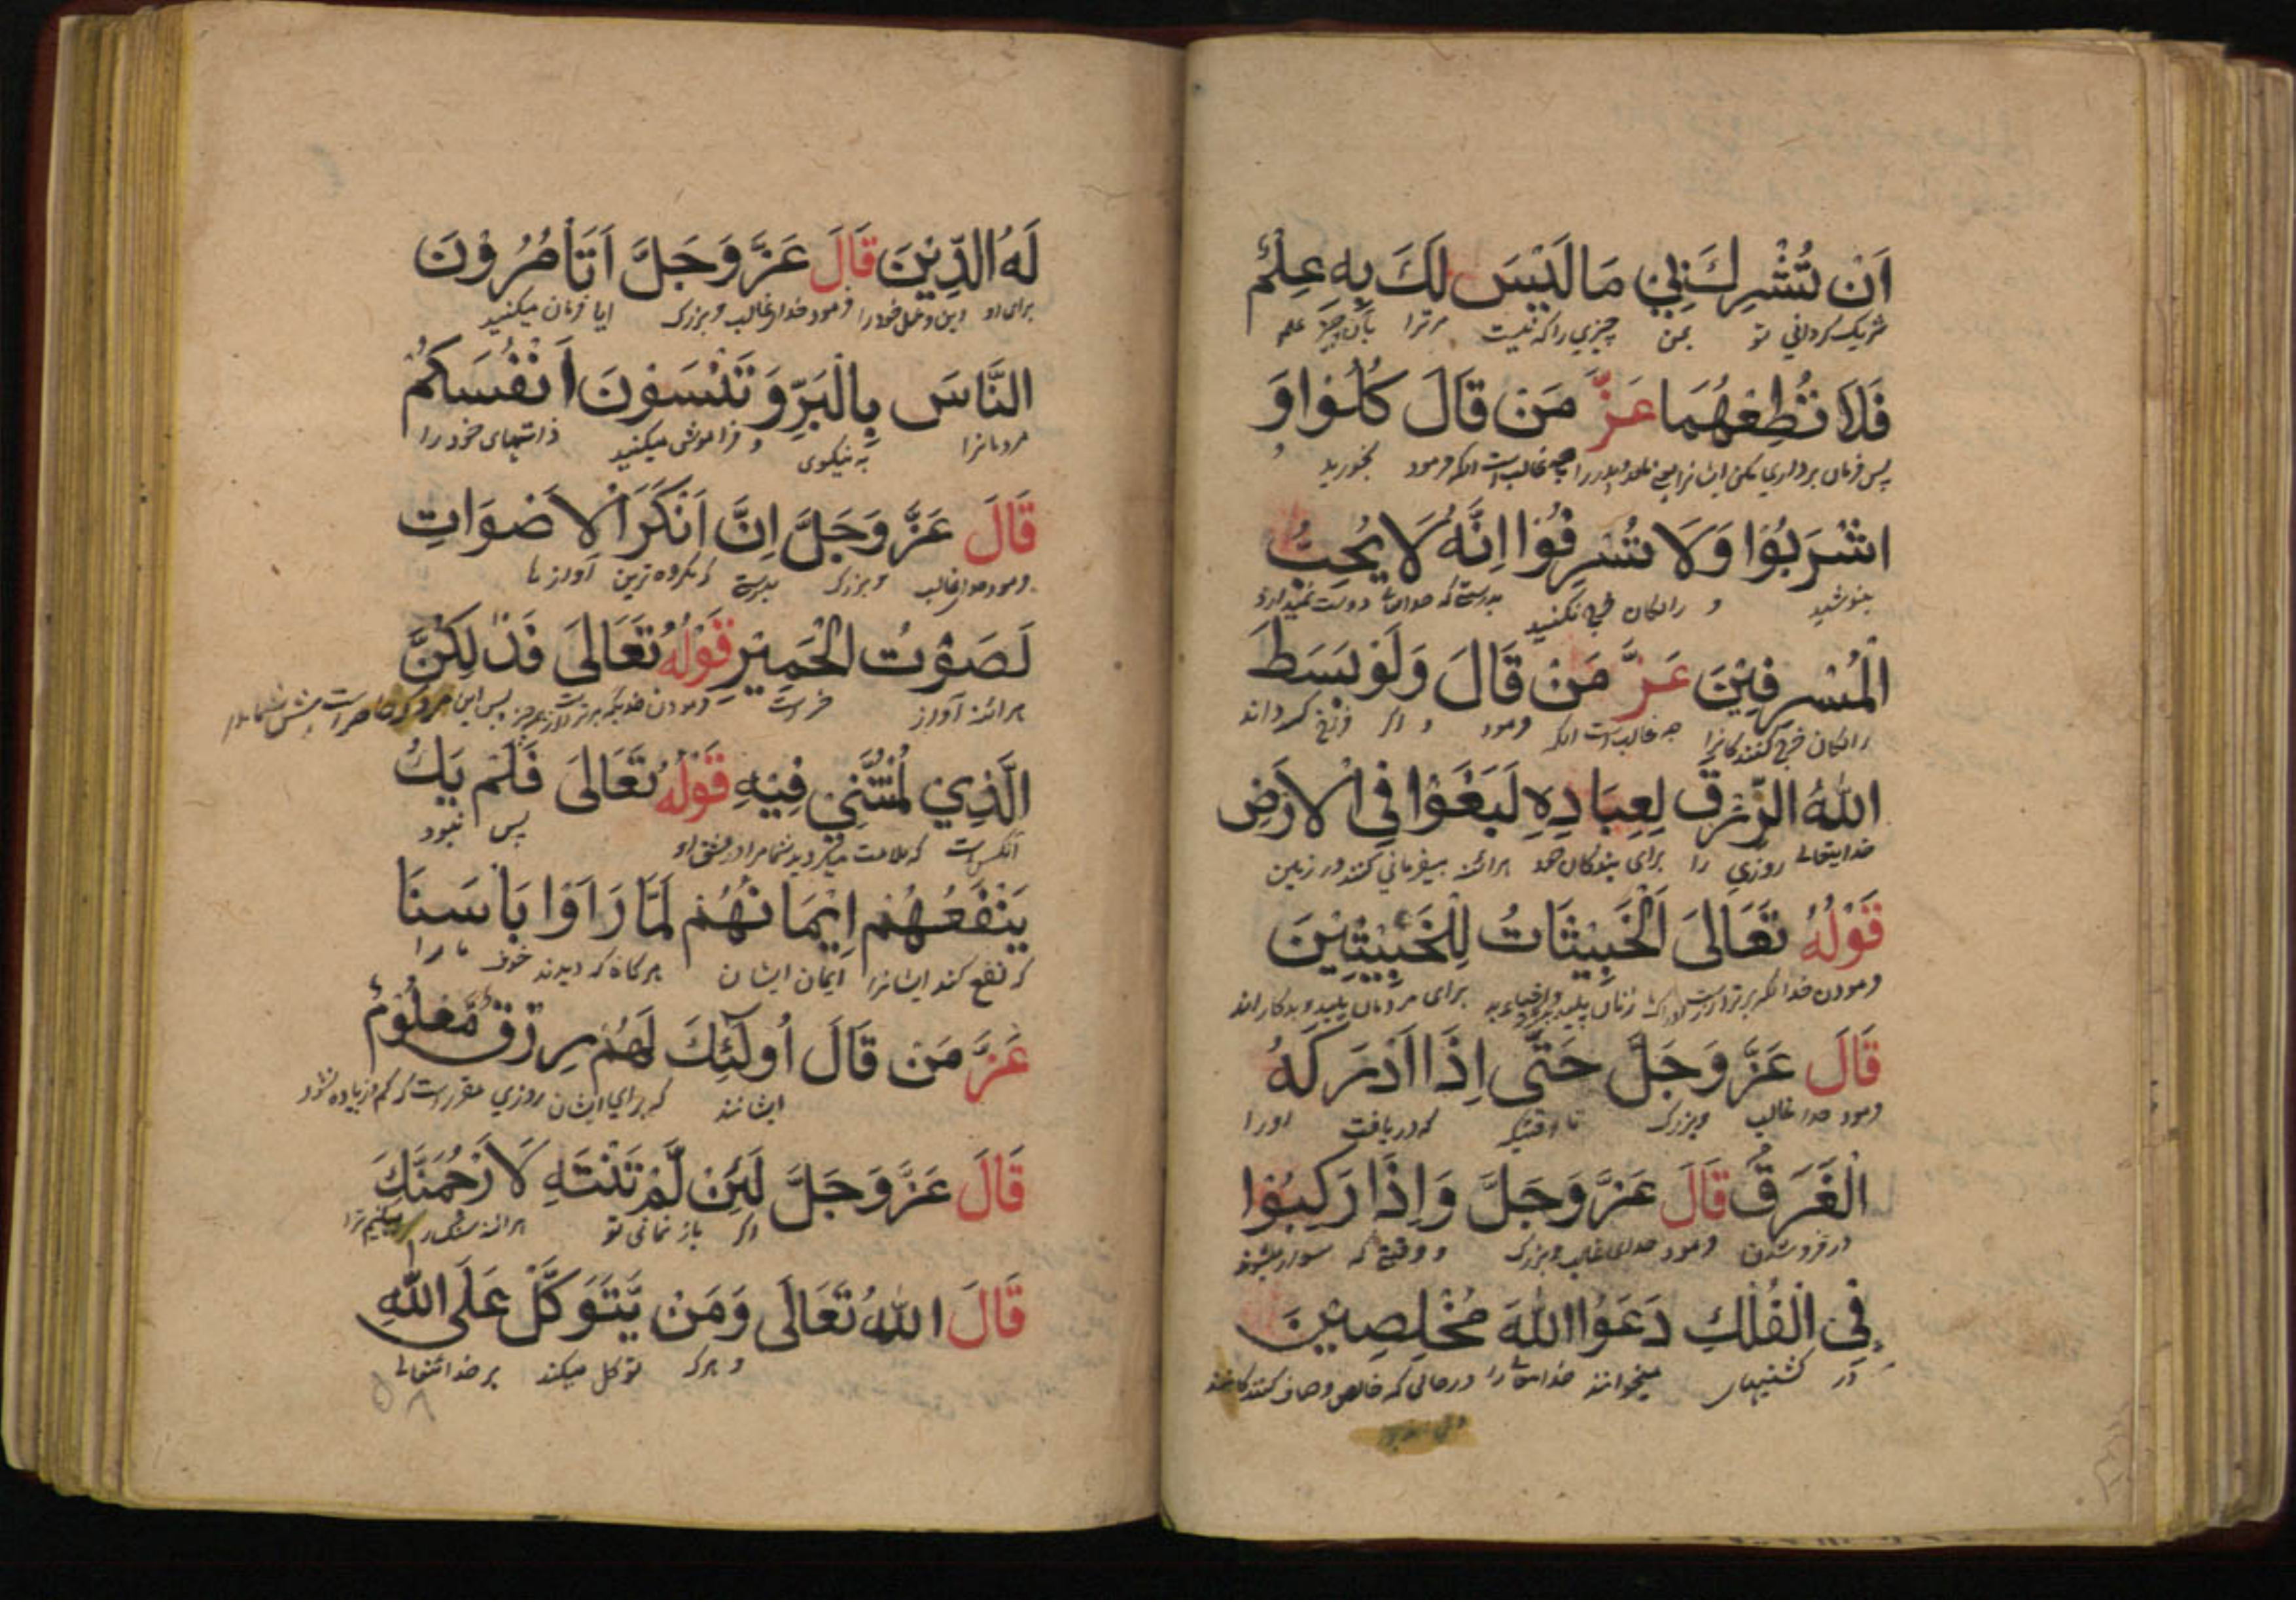 اَنْ تُشْرِكَ بِي مَا لَيْسَ لَكَ بِهِ عِلْمٌ
شریک کردانی تو بمن چیزی را که نیست مر ترا بآن چیز علم
فَلَا تُطِعْهُمَا عَزَّ مَنْ قَالَ كُلُوْا وَ
پس فرمان برداری مکن ایشانرا غالبست انکه فرمود بخورید و
اشْرَبُوْا وَلَا تُسْرِفُوْا اِنَّهُ لَا يُحِبُّ
بنوشید و رایکان خرج نکنید بدرستیکه خدایتعالی دوست نمیدارد
الْمُسْرِفِيْنَ عَزَّ مَنْ قَالَ وَلَوْ بَسَطَ
رایکان خرج کنندکانرا چه غالبست انکه فرمود و اکر فراخ کرداند
اللهُ الرِّزْقَ لِعِبَادِهِ لَبَغَوْا فِي الْاَرْضِ
خدایتعالی روزی را برای بندکان خود هرائنه بیفرمانی کنند در زمین
قَوْلُهُ تَعَالَى اَلْخَبِيْثَاتُ لِلْخَبِيْثِيْنَ
فرمودن خدا زنان پلید برای مردمان پلید و بدکار اند
قَالَ عَزَّ وَجَلَّ حَتَّى اِذَا اَدْرَكَهُ
فرمود خدای غالب وبزرک تا وقتیکه که دریافت اورا
الْغَرَقُ قَالَ عَزَّ وَجَلَّ وَاِذَا رَكِبُوْا
در فروشدن فرمود خدای غالب وبزرک و وقتی که سوار میشوند
فِي الْفُلْكِ دَعَوُا اللهَ مُخْلِصِيْنَ
در کشتیها میخوانند خدایتعالی را درحالی که خالص وصاف کنندکانند
لَهُ الدِّيْنَ قَالَ عَزَّ وَجَلَّ اَتَأْمُرُوْنَ
برای او دین خودرا فرمود خدای غالب وبزرک ایا فرمان میکنید
النَّاسَ بِالْبِرِّ وَتَنْسَوْنَ اَنْفُسَكُمْ
مردمانرا به نیکوی و فراموش میکنید ذاتهای خود را
قَالَ عَزَّ وَجَلَّ اِنَّ اَنْكَرَ الْاَصْوَاتِ
فرمود خدای غالب وبزرک بدرستی که مکروه ترین آوازها
لَصَوْتُ الْحَمِيْرِ قَوْلُهُ تَعَالَى فَذٰلِكُنَّ
هرائنه آواز خر است فرمودن پس این
الَّذِي لُمْتُنَّنِي فِيْهِ قَوْلُهُ تَعَالَى فَلَمْ يَكُ
آنکس است که ملامت میکردید شما مرا در عشق او پس نبود
يَنْفَعُهُمْ اِيْمَانُهُمْ لَمَّا رَاَوْا بَاْسَنَا
که نفع کند ایشانرا ایمان ایشان هرکاه که دیدند خوف مارا
عَزَّ مَنْ قَالَ اُولٰئِكَ لَهُمْ رِزْقٌ مَّعْلُوْمٌ
ایشانند که برای ایشان روزی مقررست که کم وزیاده نشود
قَالَ عَزَّ وَجَلَّ لَئِنْ لَّمْ تَنْتَهِ لَاَرْجُمَنَّكَ
اکر باز نمانی تو هرائنه سنکسار میکنیم ترا
قَالَ اللهُ تَعَالَى وَمَنْ يَّتَوَكَّلْ عَلَى اللهِ
و هرکه توکل میکند بر خدایتعالی
۵۸